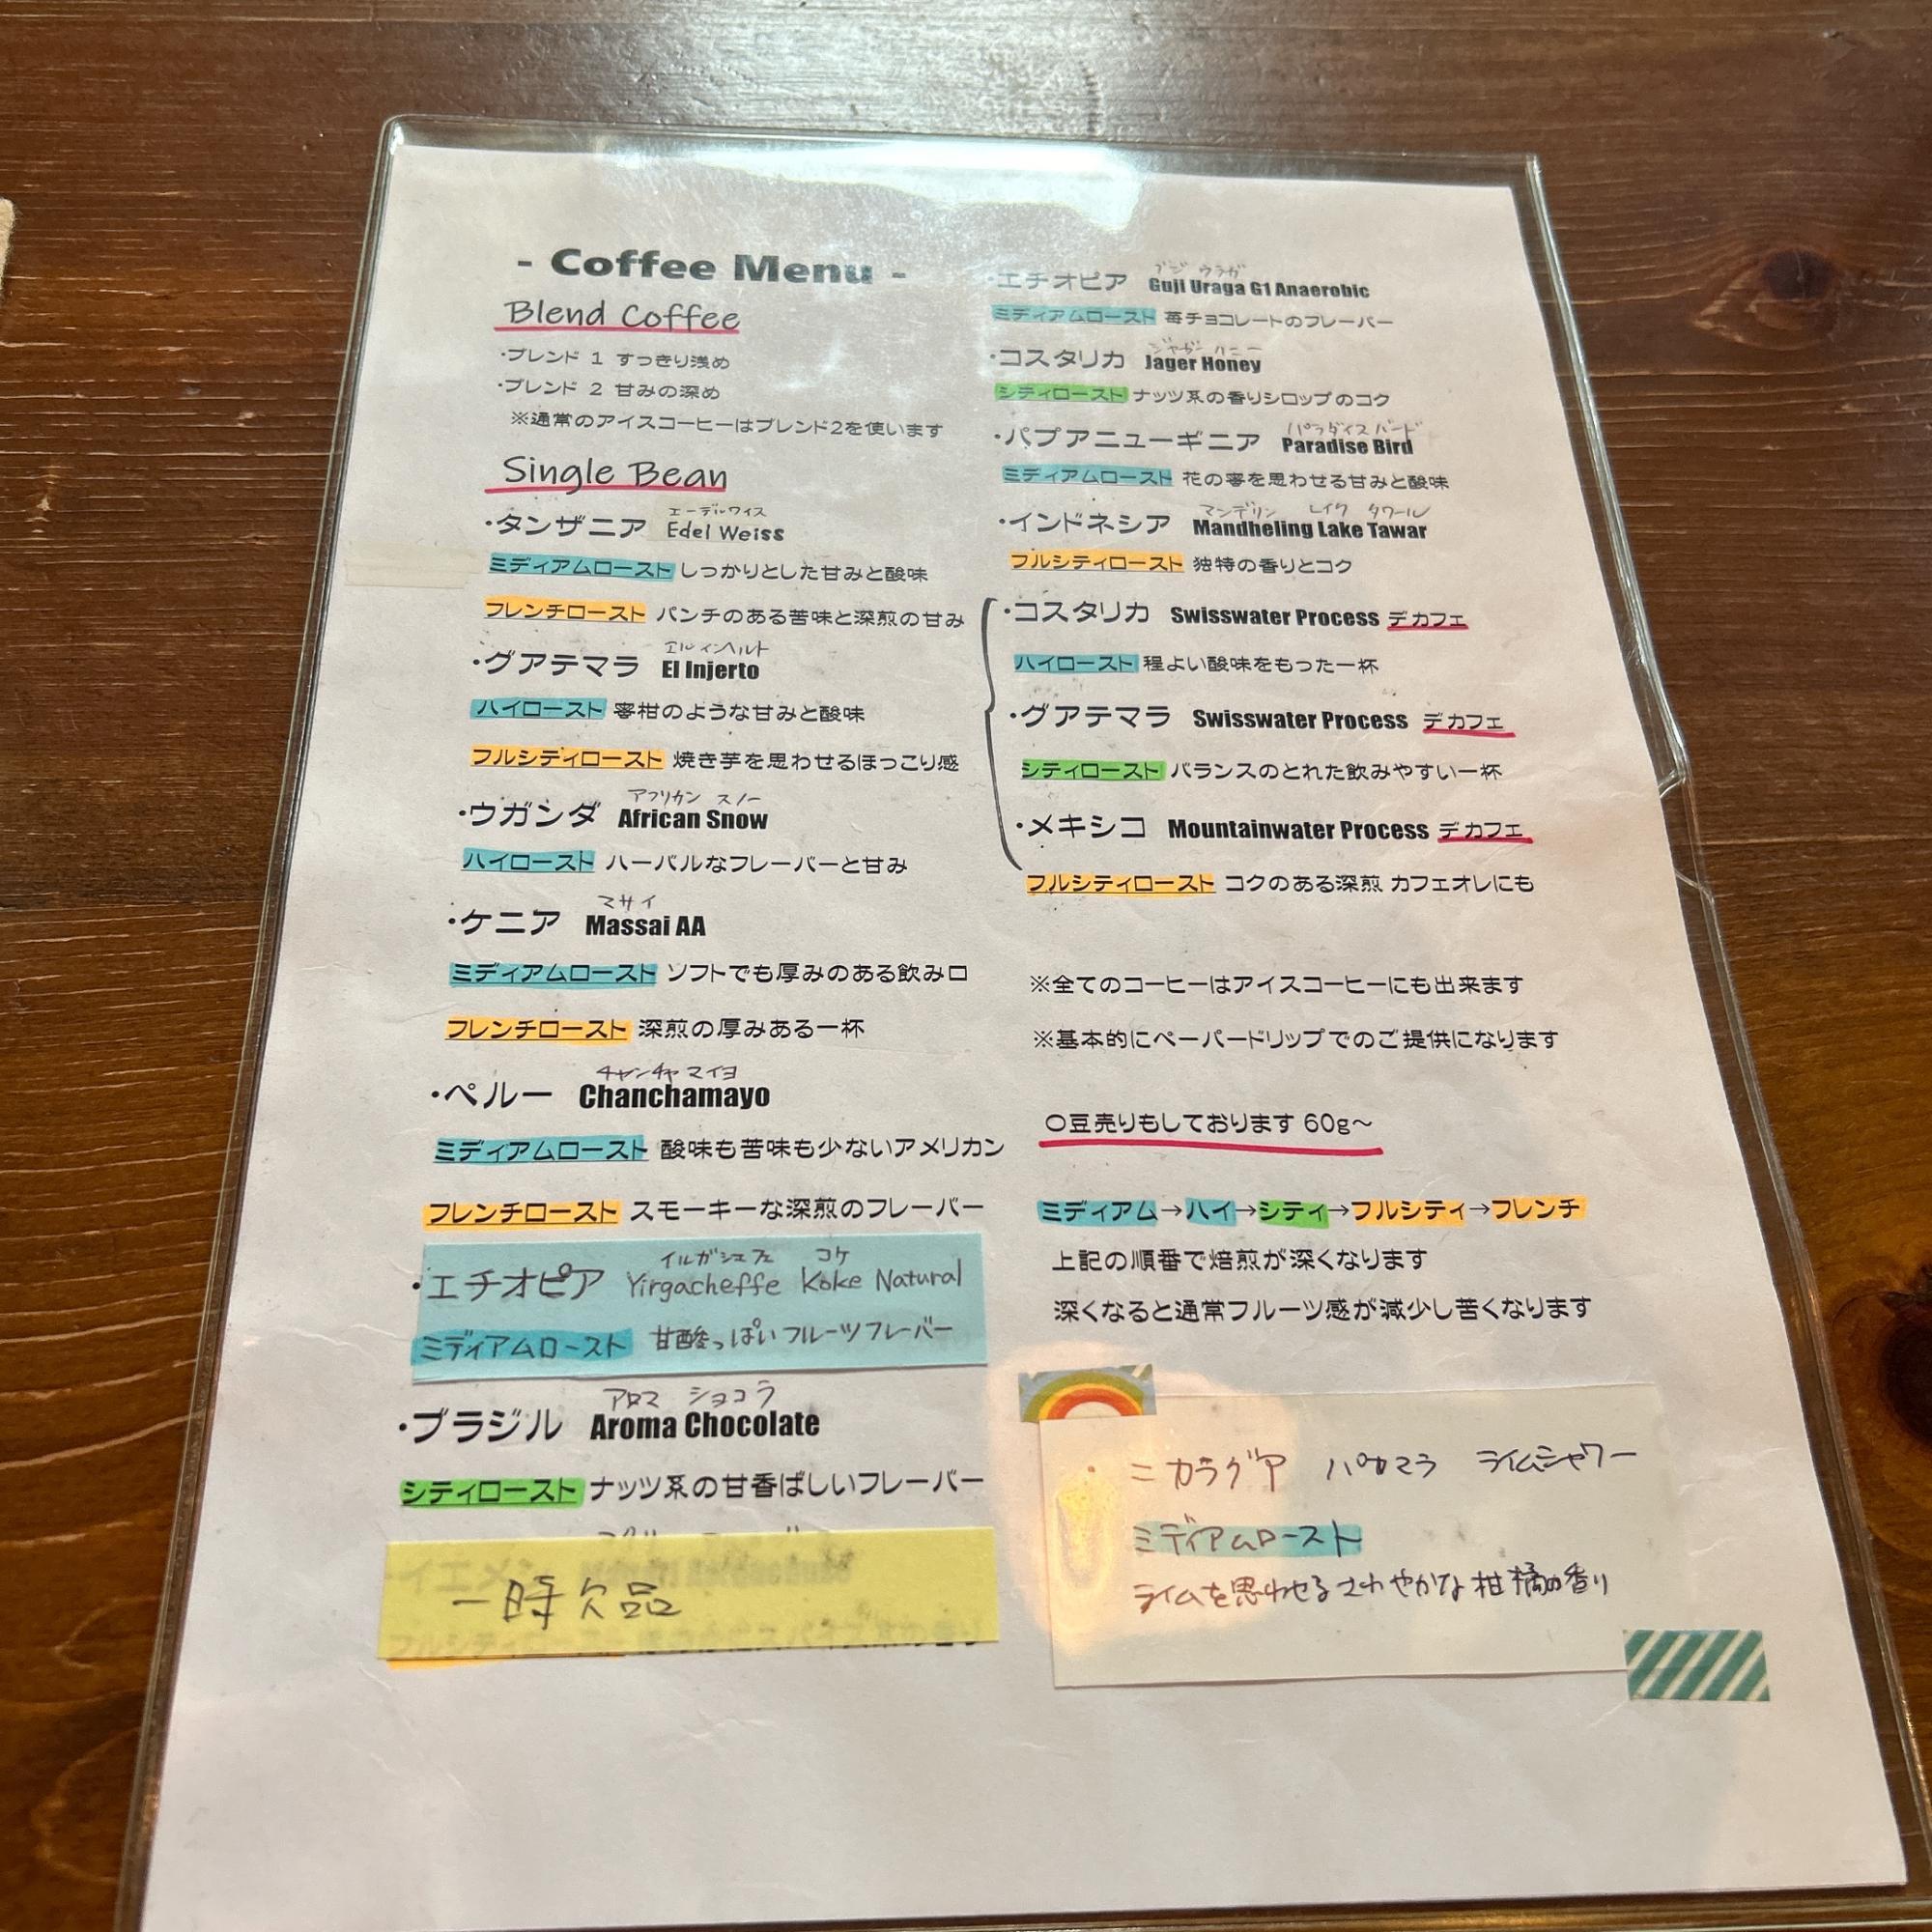 - Coffee Menu -
Blend Coffee
・ブレンド 1 すっきり浅め
・ブレンド 2 甘みの深め
※通常のアイスコーヒーはブレンド2を使います
Single Bean
エーデルワイス
・タンザニア Edel Weiss
ミディアムロースト しっかりとした甘みと酸味
フレンチロースト パンチのある苦味と深煎の甘み
エルインヘルト
・グアテマラ El Injerto
ハイロースト 蜜柑のような甘みと酸味
フルシティロースト 焼き芋を思わせるほっこり感
アフリカン スノー
・ウガンダ African Snow
ハイロースト ハーバルなフレーバーと甘み
マサイ
・ケニア Massai AA
ミディアムロースト ソフトでも厚みのある飲み口
フレンチロースト 深煎の厚みある一杯
チャンチャマイヨ
・ペルー Chanchamayo
ミディアムロースト 酸味も苦味も少ないアメリカン
フレンチロースト スモーキーな深煎のフレーバー
イルガシェフェ コケ
・エチオピア Yirgacheffe Koke Natural
ミディアムロースト 甘酸っぱいフルーツフレーバー
アロマ ショコラ
・ブラジル Aroma Chocolate
シティロースト ナッツ系の甘香ばしいフレーバー
イエメン
一時欠品
フルシティロースト
グジ ウラガ
・エチオピア Guji Uraga G1 Anaerobic
ミディアムロースト 苺チョコレートのフレーバー
ジャガーハニー
・コスタリカ Jager Honey
シティロースト ナッツ系の香りシロップのコク
パラダイスバード
・パプアニューギニア Paradise Bird
ミディアムロースト 花の蜜を思わせる甘みと酸味
マンデリン レイク タワール
・インドネシア Mandheling Lake Tawar
フルシティロースト 独特の香りとコク
・コスタリカ Swisswater Process デカフェ
ハイロースト 程よい酸味をもった一杯
・グアテマラ Swisswater Process デカフェ
シティロースト バランスのとれた飲みやすい一杯
・メキシコ Mountainwater Process デカフェ
フルシティロースト コクのある深煎 カフェオレにも
※全てのコーヒーはアイスコーヒーにも出来ます
※基本的にペーパードリップでのご提供になります
○豆売りもしております 60g～
ミディアム→ハイ→シティ→フルシティ→フレンチ
上記の順番で焙煎が深くなります
深くなると通常フルーツ感が減少し苦くなります
・ニカラグア パカマラ ライムシャワー
ミディアムロースト
ライムを思わせるさわやかな柑橘の香り